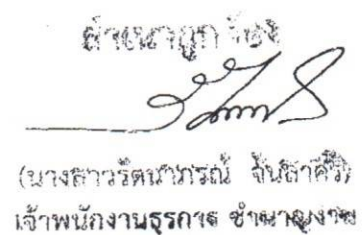 สำเนาถูกต้อง
(นางสาวรัตนาภรณ์ จันลาศิริ)
เจ้าพนักงานธุรการ ชำนาญงาน